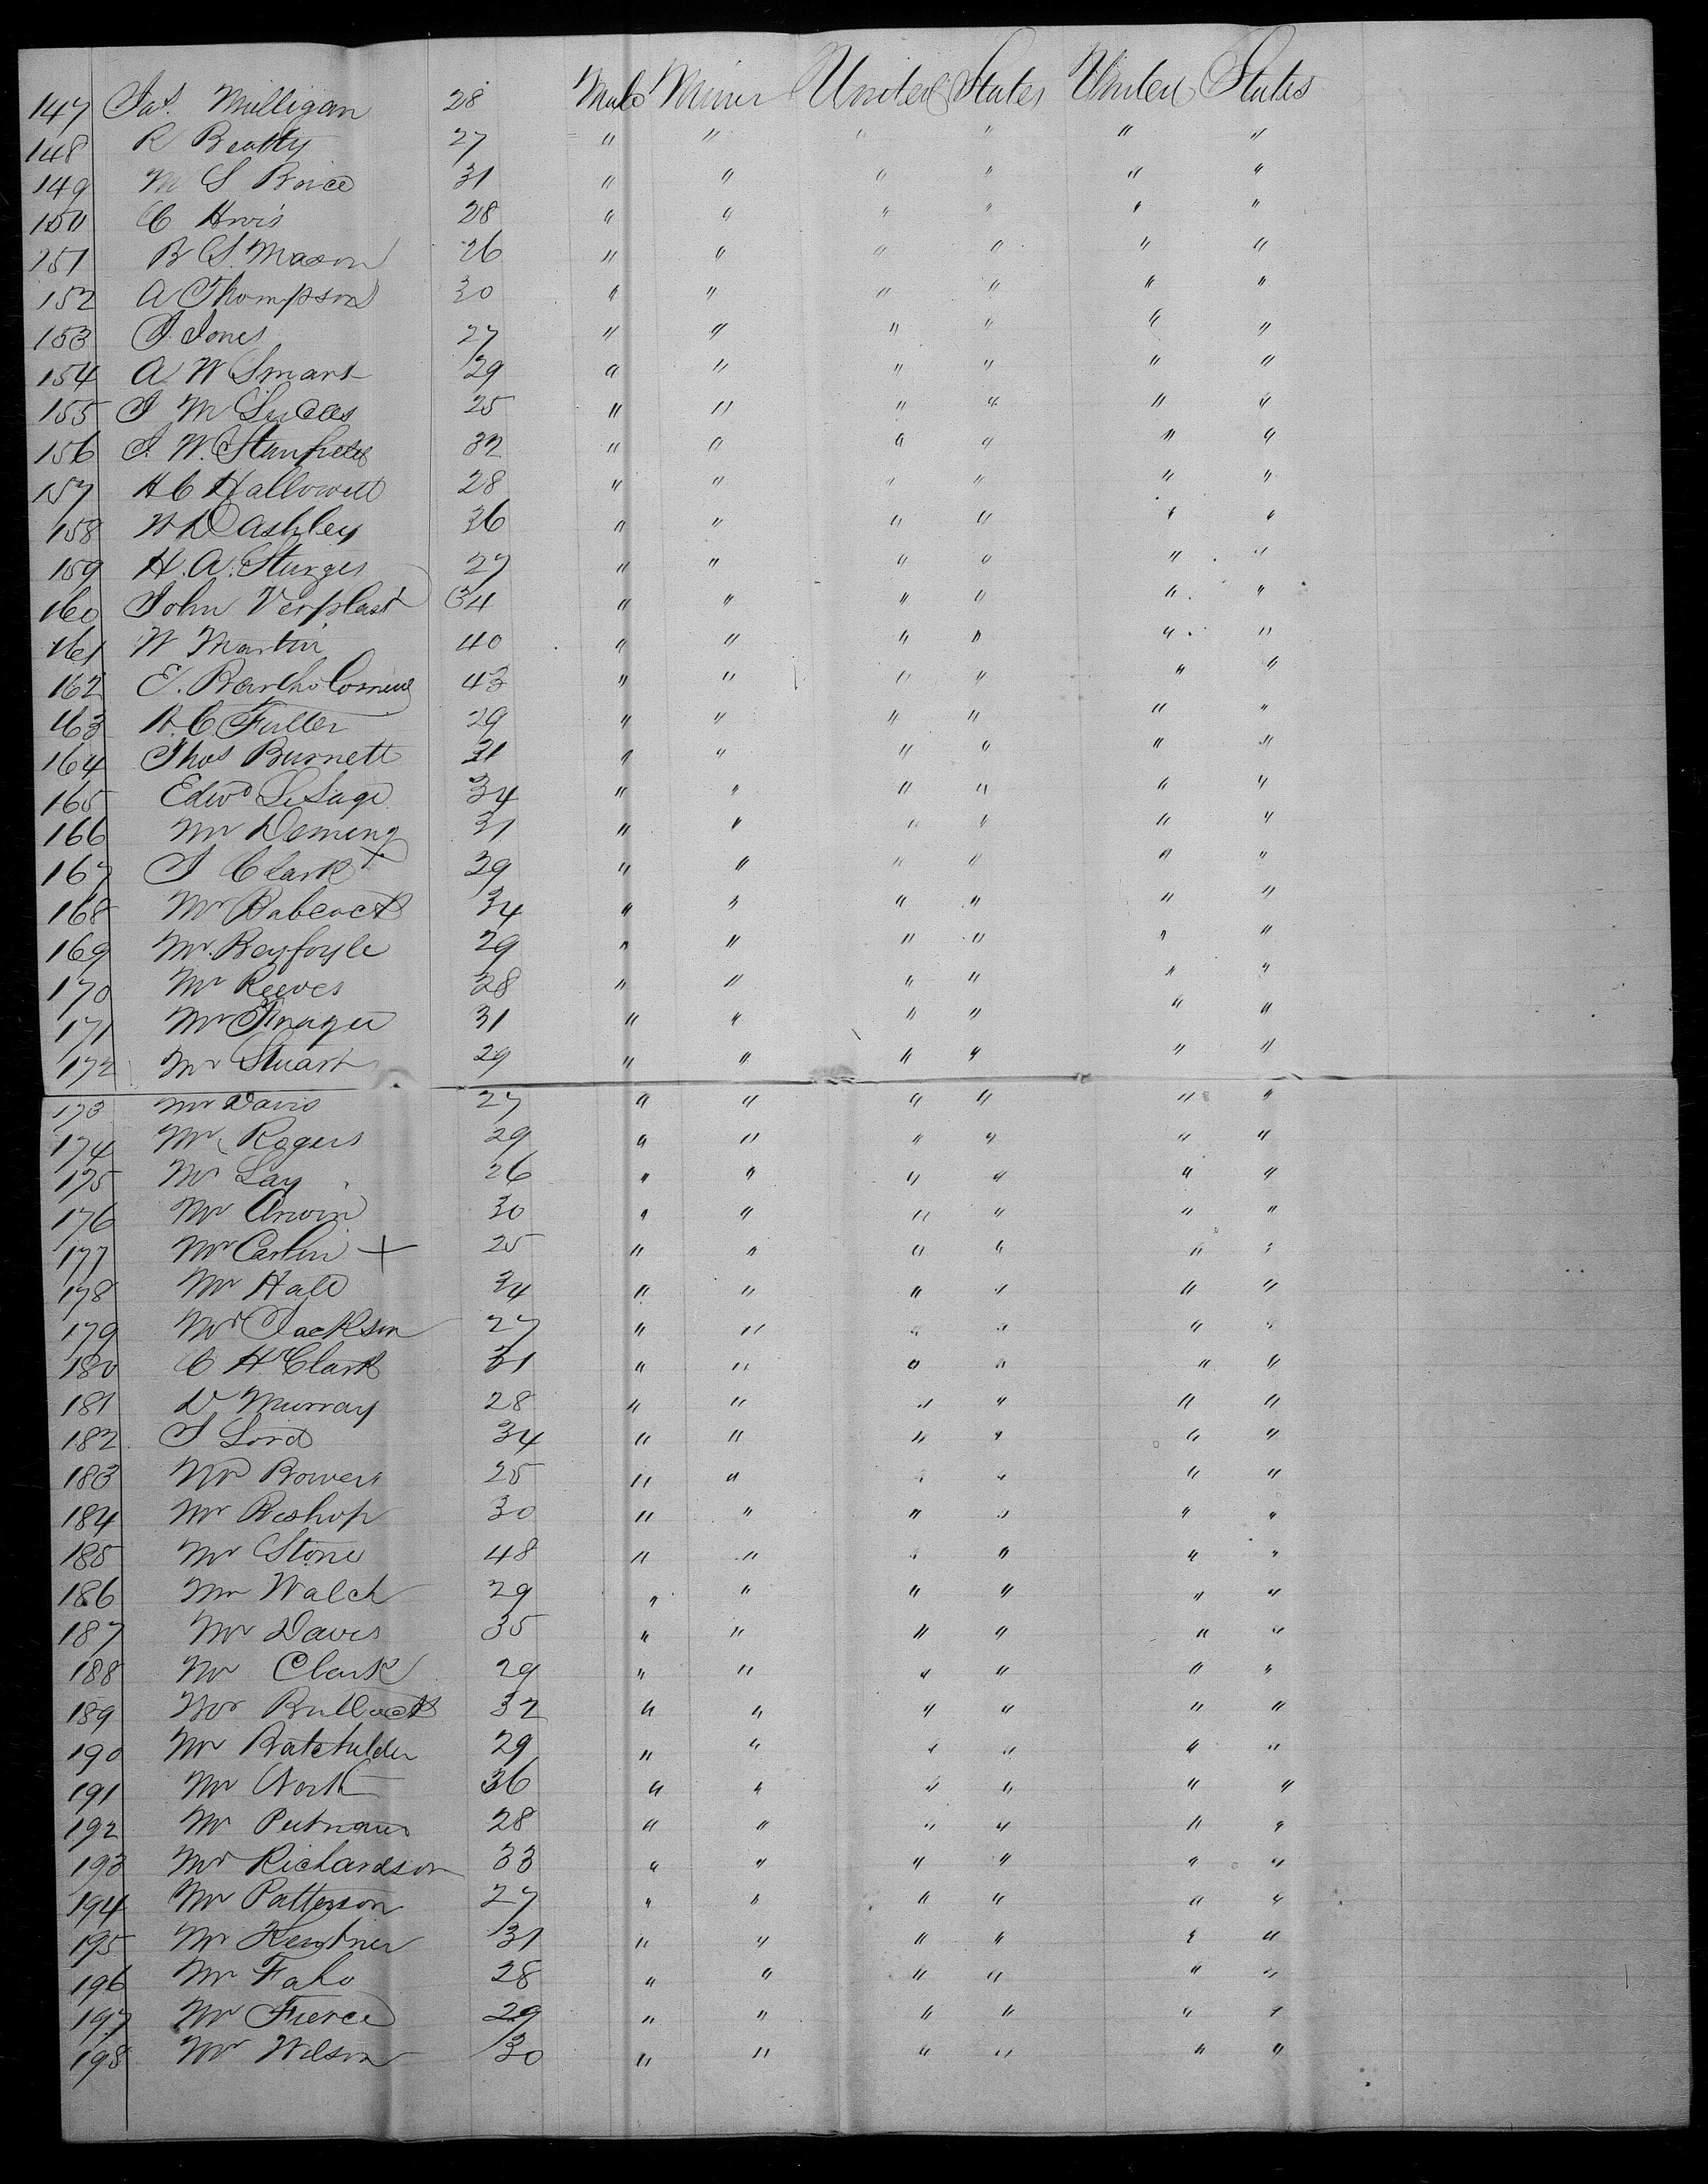 147 Jas. Milligan 28 Male Miner United States United States
148 R Beatty 27 " " " " " "
149 M S Boice 31 " " " " " "
150 C 28 " " " " " "
151 B S. Mason 26 " " " " " "
152 A Thompson 30 " " " " " "
153 J. Jones 27 " " " " " "
154 A W Smart 29 " " " " " "
155 J M Lucas 25 " " " " " "
156 J. W. Stanfield 32 " " " " " "
157 H C Hallowell 28 " " " " " "
158 W D Ashley 36 " " " " " "
159 H. A. Sturges 27 " " " " " "
160 John Verplast 34 " " " " " "
161 W Martin 40 " " " " " "
162 E. Bartholomew 43 " " " " " "
163 A. C. Fuller 29 " " " " " "
164 Thos Burnett 31 " " " " " "
165 Edwd LeSage 34 " " " " " "
166 Mr Deming 31 " " " " " "
167 J Clark + 39 " " " " " "
168 Mr Babcock 34 " " " " " "
169 Mr. 29 " " " " " "
170 Mr Reeves 28 " " " " " "
171 Mr 31 " " " " " "
172 Mr Stuart 29 " " " " " "
173 Mr Davis 27 " " " " " "
174 Mr Rogers 29 " " " " " "
175 Mr Lay 26 " " " " " "
176 Mr Arwin 30 " " " " " "
177 Mr Carlin + 25 " " " " " "
178 Mr Hall 34 " " " " " "
179 Mr Jackson 27 " " " " " "
180 C H Clark 31 " " " " " "
181 D Murray 28 " " " " " "
182 J Lord 34 " " " " " "
183 Mr Bowers 25 " " " " " "
184 Mr Bishop 30 " " " " " "
185 Mr Stone 48 " " " " " "
186 Mr Walch 29 " " " " " "
187 Mr Daves 35 " " " " " "
188 Mr Clark 29 " " " " " "
189 Mr Bullock 32 " " " " " "
190 Mr Batchelder 29 " " " " " "
191 Mr North 36 " " " " " "
192 Mr Putnam 28 " " " " " "
193 Mr Richardson 33 " " " " " "
194 Mr Patterson 27 " " " " " "
195 Mr 31 " " " " " "
196 Mr Faho 28 " " " " " "
197 Mr Fierce 29 " " " " " "
198 Mr Wilson 30 " " " " " "